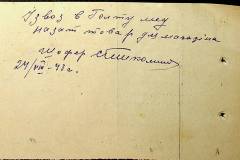 Ізвоз в Полту меу
назат товар для магазіна
шофер
24/VIII-43 г.